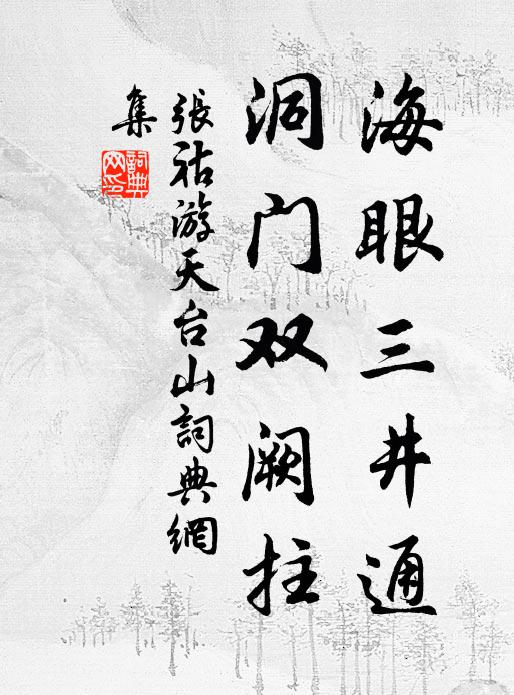 海眼三井通
洞门双阙拄
張祜游天台山詞典網
集
詞典网印